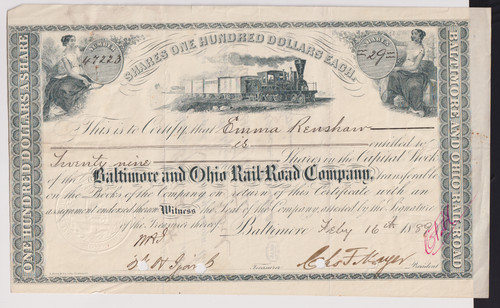 NUMBER
47223
SHARES ONE HUNDRED DOLLARS EACH.
SHARES
29
ONE HUNDRED DOLLARS A SHARE
BALTIMORE AND OHIO RAIL ROAD
This is to Certify, that Emma Renshaw
is entitled to
Twenty nine Shares in the Capital Stock
of the Baltimore and Ohio Rail-Road Company, Transferable
on the Books of the Company on return of this Certificate with an
assignment endorsed thereon Witness the Seal of the Company, attested by the Signature
of the Treasurer thereof. Baltimore Feby 16th
Treasurer Chas F Mayer President